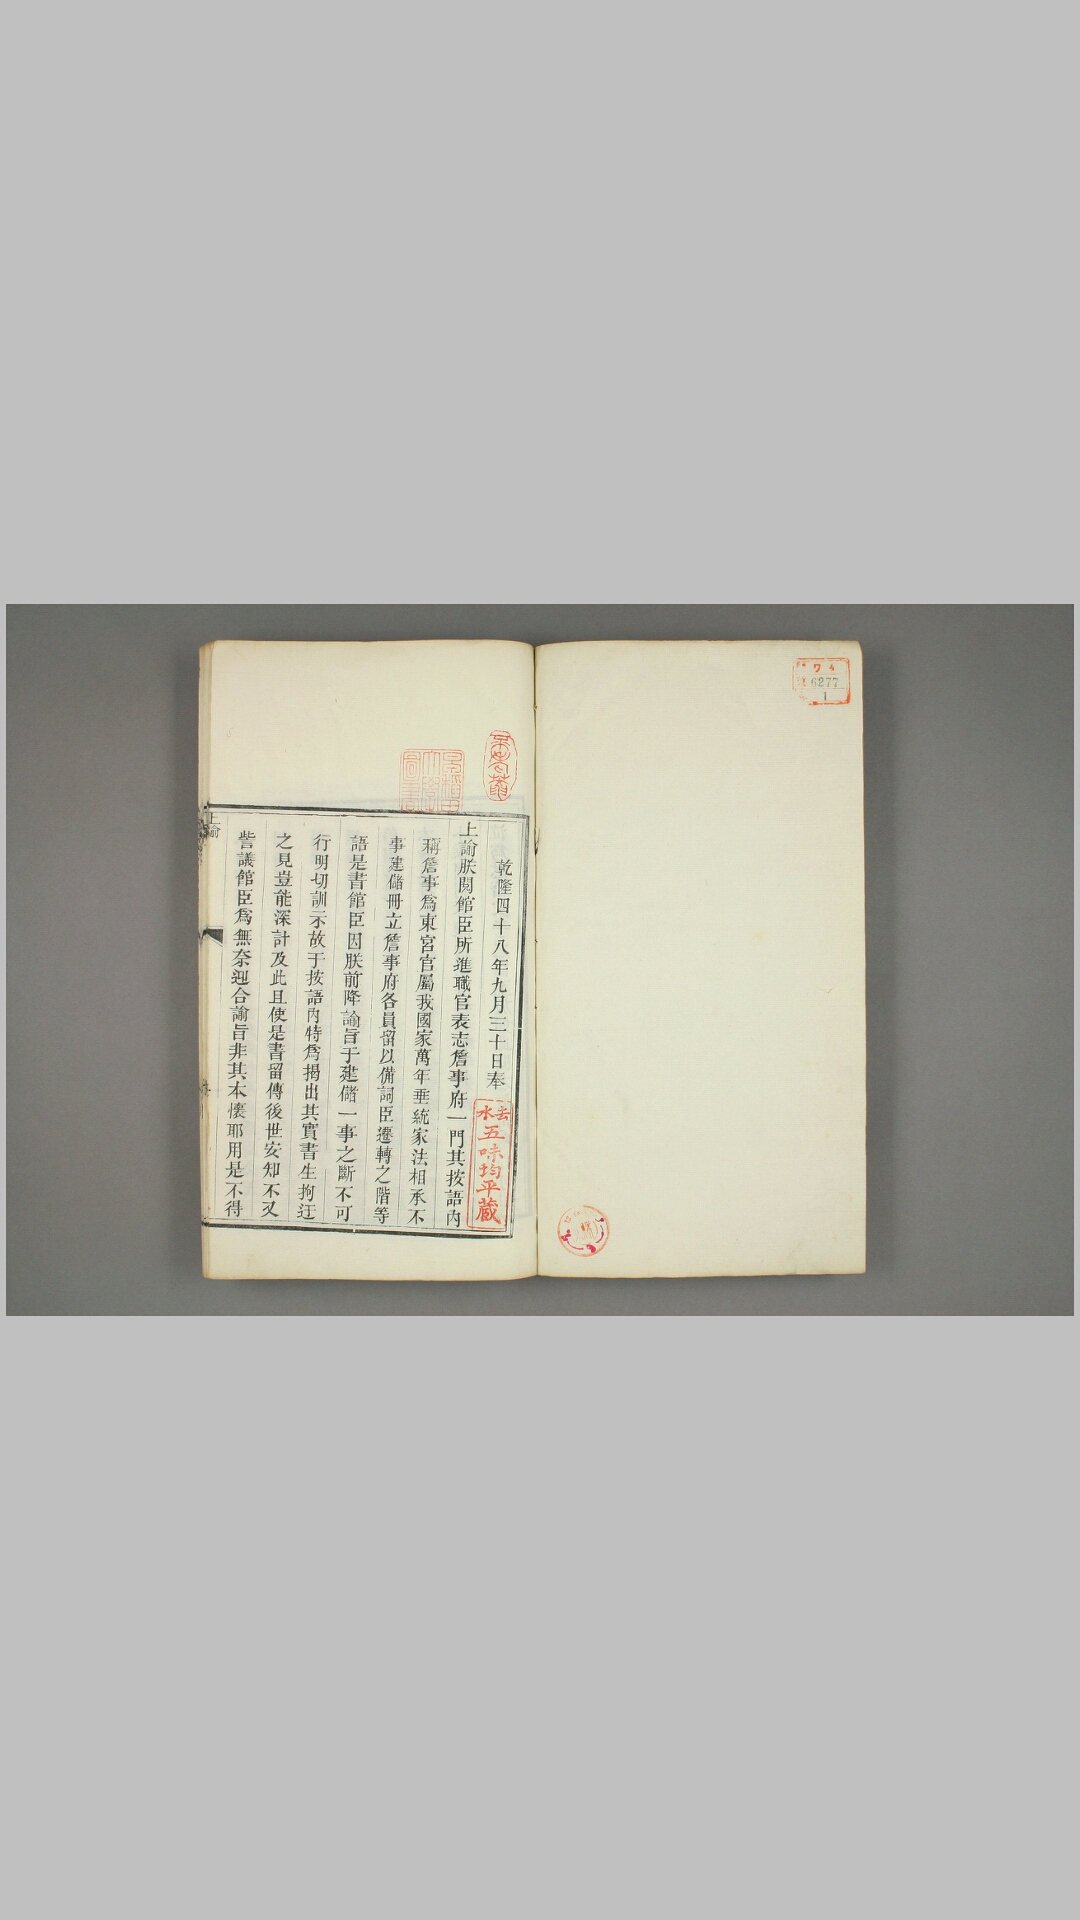 6277
1
乾隆四十八年九月三十日奉
上諭朕閱館臣所進職官表志詹事府一門其按語內
稱詹事爲東宮官屬我國家萬年垂統家法相承不
事建儲冊立詹事府各員留以備詞臣遷轉之階等
語是書館臣因朕前降諭旨于建儲一事之斷不可
行明切訓示故于按語內特爲揭出其實書生拘迂
之見豈能深計及此且使是書留傳後世安知不又
訾議館臣爲無奈迎合諭旨非其本懷耶用是不得
上諭
早稻田
大學
圖書
去水
五味均平藏